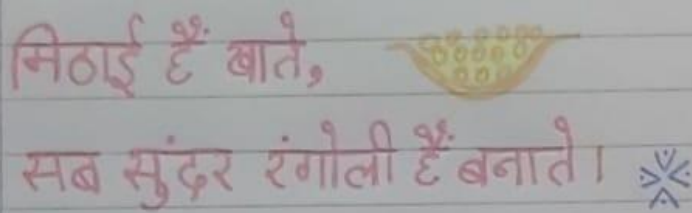 मिठाई हैं खाते,
सब सुंदर रंगोली हैं बनाते।